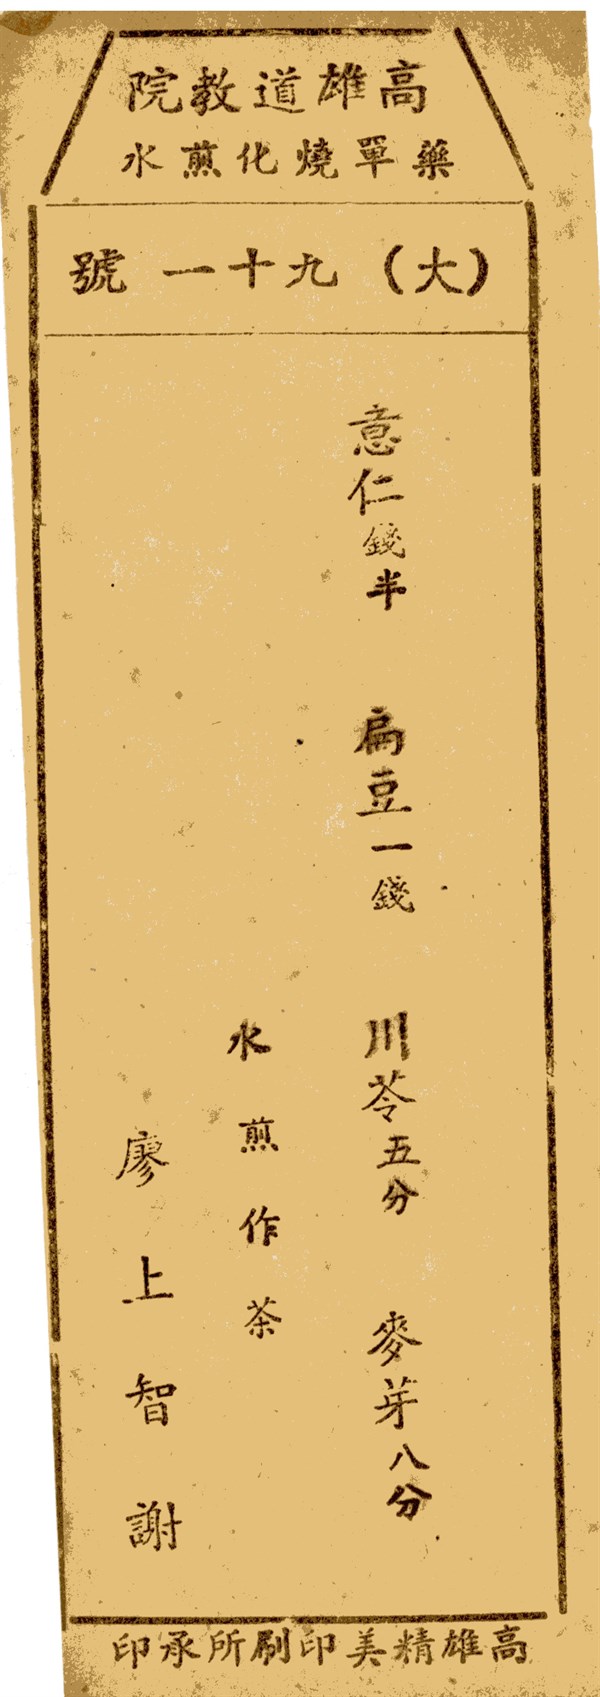 高雄道教院
藥單燒化煎水
(大)九十一號
意仁錢半 扁豆一錢 川苓五分 麥芽八分
水煎作茶
廖上智謝
高雄精美印刷所承印